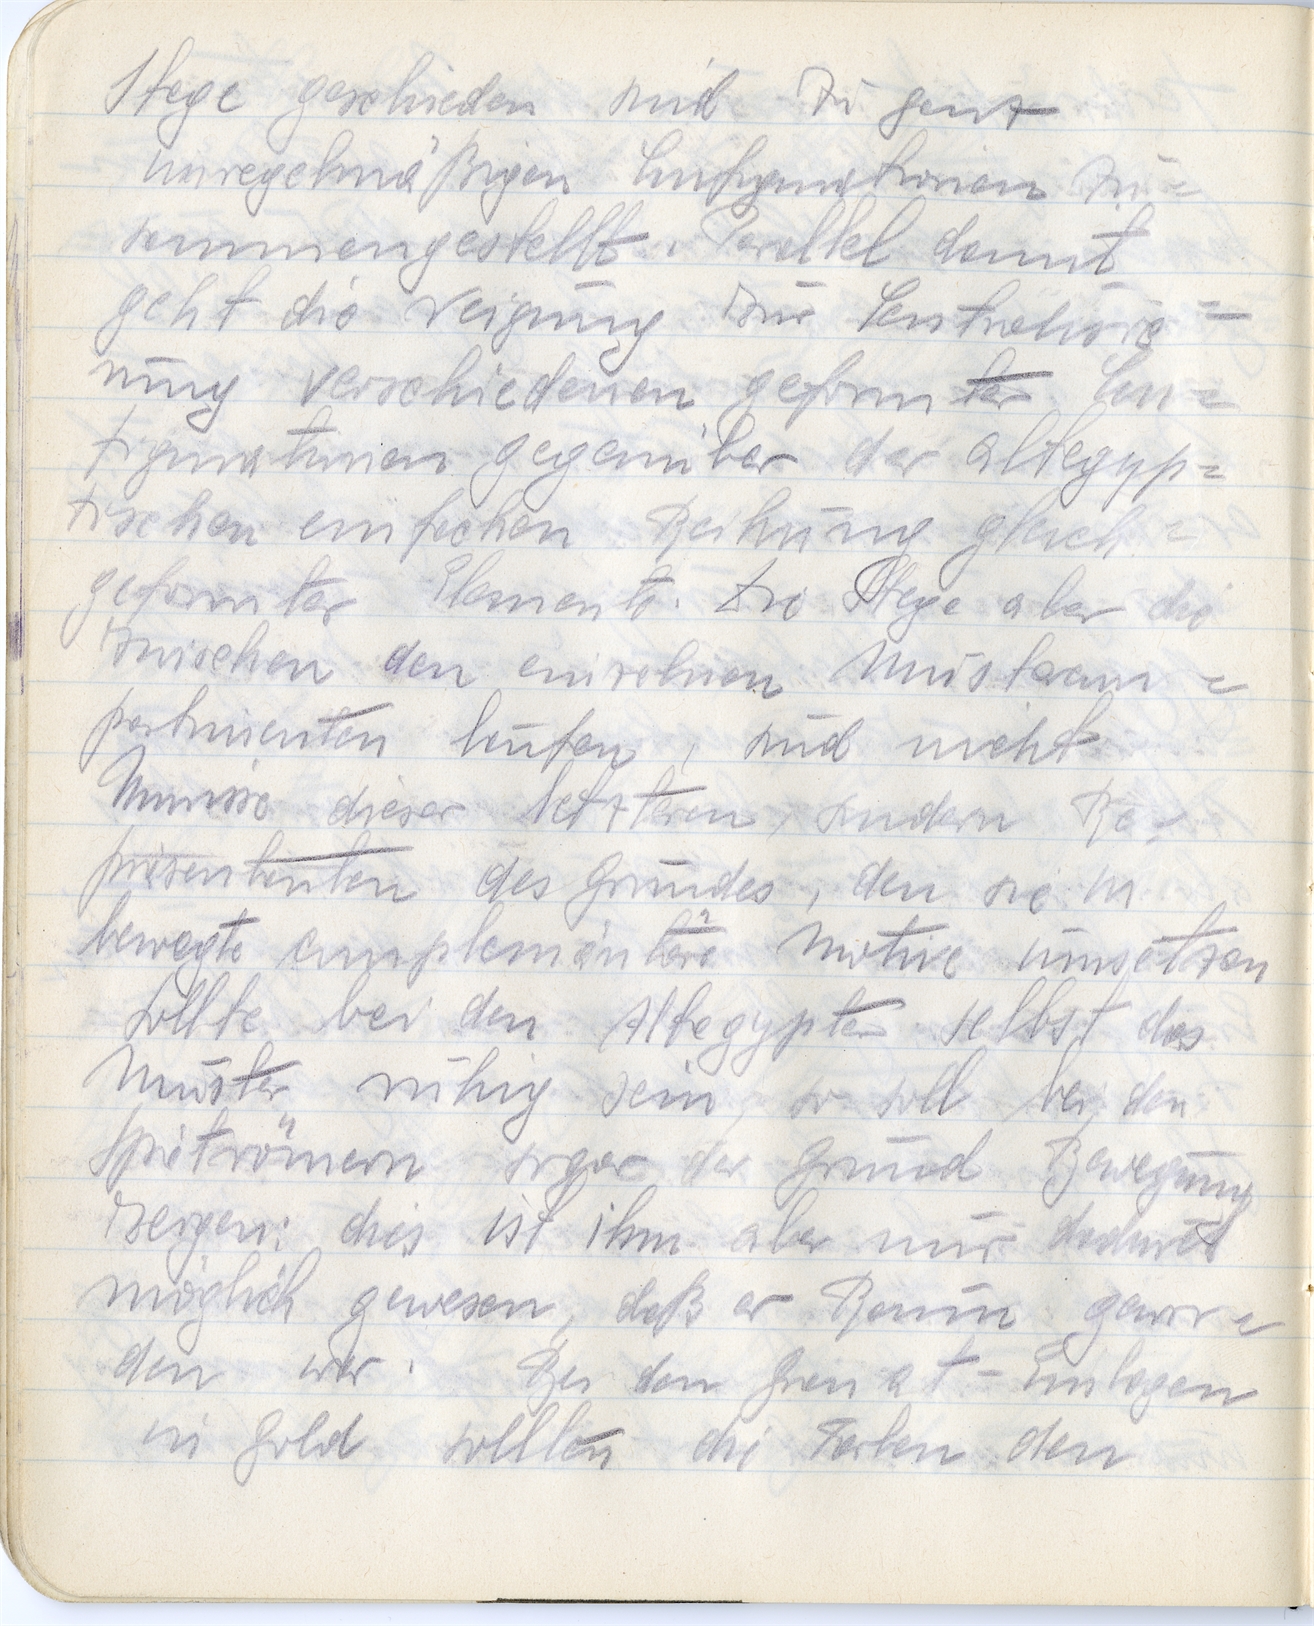 Stege geschieden sind zu ganz
unregelmäßigen Configurationen zu=
sammengestellt. Parallel damit
geht die Neigung zur Centralisie=
rung verschiedenen geformter Con=
figurationen gegenüber der altegyp=
tischen einfachen Reihung gleich=
geformter Elemente. Die Stege aber die
zwischen den einzelnen Mustercom=
partimenten laufen, sind nicht
Umrisse dieser letzteren, sondern Re=
präsentanten des Grundes, den sie in
bewegte complementäre Motive umsetzen
sollte bei den Altegypter selbst das
Muster ruhig sein, so soll bei den
Spätrömern sogar der Grund Bewegung
zeigen: dies ist ihm aber nur dadurch
möglich gewesen, daß er Raum gewor=
den war. Bei den Granat-Einlagen
in Gold sollten die Farben den